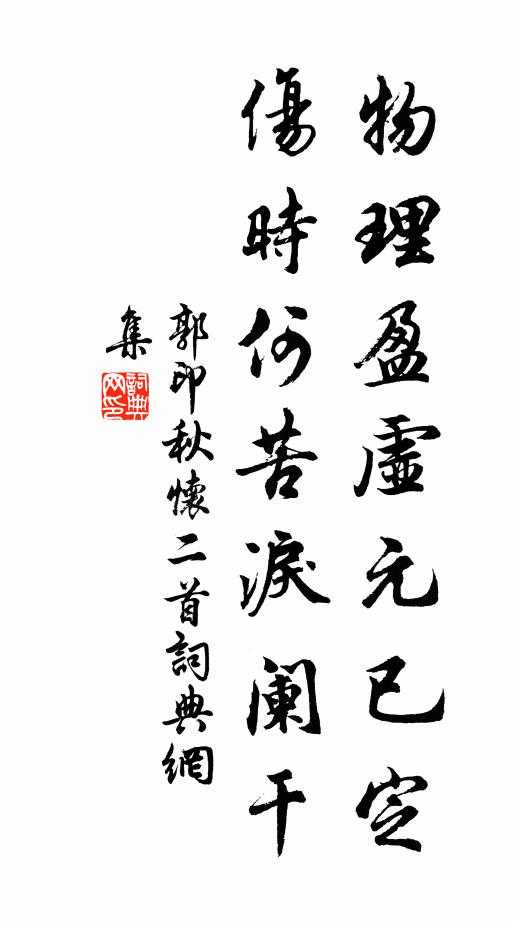 物理盈虛元已定
傷時何苦淚闌干
郭印秋懷二首詞典網
集
詞典
网印